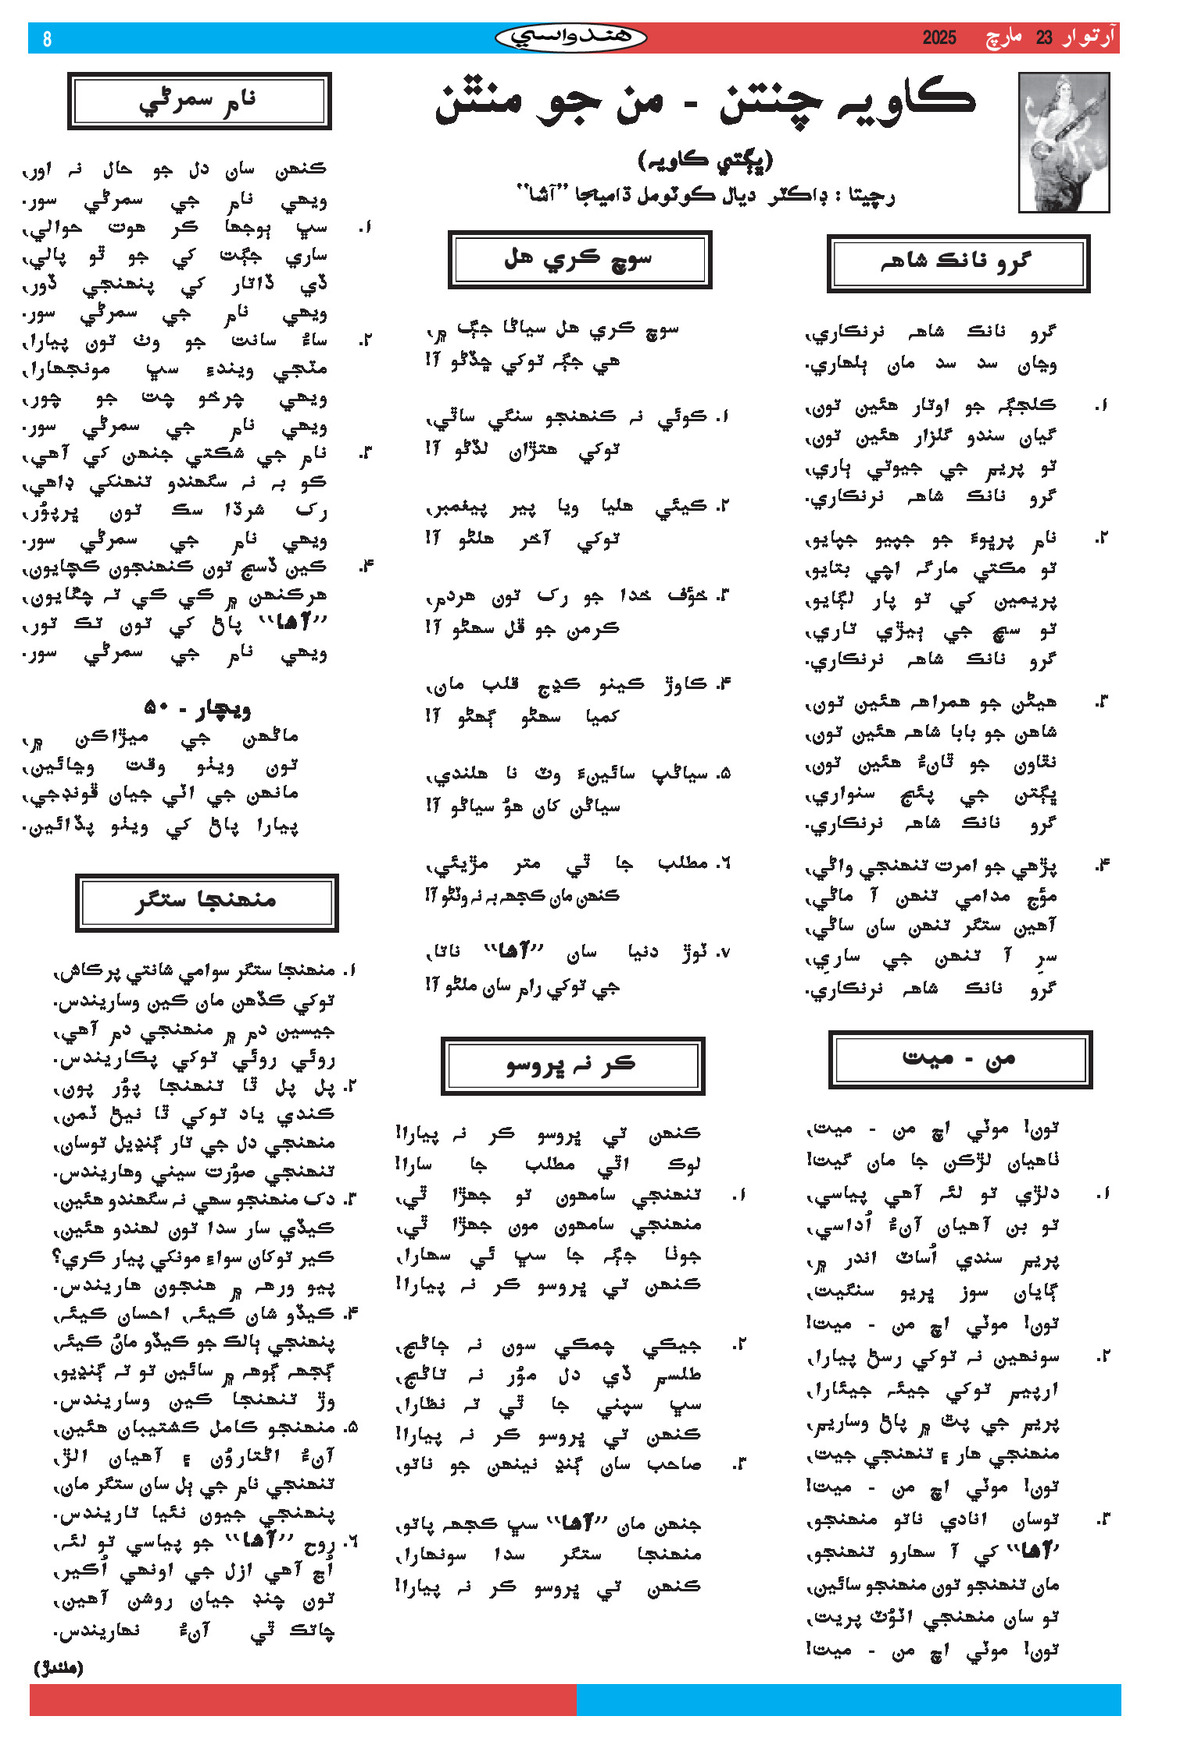 آرتوار 23 مارچ 2025
هندواسي
8
ڪاويہ چنتن - من جو منٿن
(ڀڳتي ڪاويہ)
رچيتا : ڊاڪٽر ديال ڪوٽومل ڌاميجا ”آشا“
گرو نانڪ شاهہ
گرو نانڪ شاهہ نرنڪاري،
وڃان سد سد مان ٻلهاري.
۱. ڪلجڳہ جو اوتار هئين تون،
گيان سندو گلزار هئين تون،
تو پريم جي جيوتي ٻاري،
گرو نانڪ شاهہ نرنڪاري.
۲. نام پرڀوءَ جو جپيو جپايو،
تو مڪتي مارگہ اچي بتايو،
پريمين کي تو پار لڳايو،
تو سچ جي ٻيڙي تاري،
گرو نانڪ شاهہ نرنڪاري.
۳. هيڻن جو همراهہ هئين تون،
شاهن جو بابا شاهہ هئين تون،
نٿاون جو ٿانءُ هئين تون،
ڀڳتن جي پئج سنواري،
گرو نانڪ شاهہ نرنڪاري.
۴. پڙهي جو امرت تنهنجي واڻي،
مؤج مدامي تنهن آ ماڻي،
آهين ستگر تنهن سان ساڻي،
سرِ آ تنهن جي ساري،
گرو نانڪ شاهہ نرنڪاري.
من - ميت
تون! موٽي اچ من - ميت،
ٺاهيان لڙڪن جا مان گيت!
۱. دلڙي تو لئہ آهي پياسي،
تو بن آهيان آنءُ اُداسي،
پريم سندي اُساٽ اندر ۾،
ڳايان سوز ڀريو سنگيت،
تون! موٽي اچ من - ميت!
۲. سونهين نہ توکي رسڻ پيارا،
ارپيم توکي جيئہ جيئارا،
پريم جي پٿ ۾ پاڻ وساريم،
منهنجي هار ۽ تنهنجي جيت،
تون! موٽي اچ من - ميت!
۳. توسان انادي ناتو منهنجو،
’آشا“ کي آ سهارو تنهنجو،
مان تنهنجو تون منهنجو سائين،
تو سان منهنجي اٽوُٽ پريت،
تون! موٽي اچ من - ميت!
سوچ ڪري هل
سوچ ڪري هل سياڻا جڳ ۾،
هي جڳہ توکي ڇڏڻو آ!
۱. ڪوئي نہ ڪنهنجو سنگي ساٿي،
توکي هتڙان لڏڻو آ!
۲. ڪيئي هليا ويا پير پيغمبر،
توکي آخر هلڻو آ!
۳. خؤف خدا جو رک تون هردم،
ڪرمن جو ڦل سهڻو آ!
۴. ڪاوڙ ڪينو ڪڍج قلب مان،
کميا سهڻو ڳهڻو آ!
۵. سياڻپ سائينءَ وٽ نا هلندي،
سياڻن کان هوُ سياڻو آ!
۶. مطلب جا ٿي متر مڙيئي،
ڪنهن مان ڪجهہ بہ نہ وٺڻو آ!
۷. ٽوڙ دنيا سان ”آشا“ ناتا،
جي توکي رام سان ملڻو آ!
ڪر نہ ڀروسو
ڪنهن تي ڀروسو ڪر نہ پيارا!
لوڪ اٿي مطلب جا سارا!
۱. تنهنجي سامهون تو جهڙا ٿي،
منهنجي سامهون مون جهڙا ٿي،
جوٺا جڳہ جا سڀ ئي سهارا،
ڪنهن تي ڀروسو ڪر نہ پيارا!
۲. جيڪي چمڪي سون نہ ڄاڻج،
طلسم ڏي دل موُر نہ تاڻج،
سڀ سپني جا ٿي تہ نظارا،
ڪنهن تي ڀروسو ڪر نہ پيارا!
۳. صاحب سان ڳنڍ نينهن جو ناتو،
جنهن مان ”آشا“ سڀ ڪجهہ پاتو،
منهنجا ستگر سدا سونهارا،
ڪنهن تي ڀروسو ڪر نہ پيارا!
نام سمرڻي
ڪنهن سان دل جو حال نہ اور،
ويهي نام جي سمرڻي سور.
۱. سڀ ٻوجها ڪر هوت حوالي،
ساري جڳت کي جو ٿو پالي،
ڏي ڏاتار کي پنهنجي ڏور،
ويهي نام جي سمرڻي سور.
۲. ساءُ سانت جو وٺ تون پيارا،
مٽجي ويندءِ سڀ مونجهارا،
ويهي چرخو چت جو چور،
ويهي نام جي سمرڻي سور.
۳. نام جي شڪتي جنهن کي آهي،
ڪو بہ نہ سگهندو تنهنکي ڊاهي،
رک شرڌا سڪ تون ڀرپوُر،
ويهي نام جي سمرڻي سور.
۴. ڪين ڏسج تون ڪنهنجون ڪچايون،
هرڪنهن ۾ ڪي ڪي تہ چڱايون،
”آشا“ پاڻ کي تون تڪ تور،
ويهي نام جي سمرڻي سور.
ويچار - ۵۰
ماڻهن جي ميڙاڪن ۾،
تون ويٺو وقت وڃائين،
مانهن جي اٽي جيان ڦونڊجي،
پيارا پاڻ کي ويٺو پڏائين.
منهنجا ستگر
۱. منهنجا ستگر سوامي شانتي پرڪاش،
توکي ڪڏهن مان ڪين وساريندس.
جيسين دم ۾ منهنجي دم آهي،
روئي روئي توکي پڪاريندس.
۲. پل پل ٿا تنهنجا پوُر پون،
ڪندي ياد توکي ٿا نيڻ ٽمن،
منهنجي دل جي تار ڳنڍيل توسان،
تنهنجي صوُرت سيني وهاريندس.
۳. دک منهنجو سهي نہ سگهندو هئين،
ڪيڏي سار سدا تون لهندو هئين،
ڪير توکان سواءِ مونکي پيار ڪري؟
پيو ورهہ ۾ هنجون هاريندس.
۴. ڪيڏو شان ڪيئہ، احسان ڪيئہ،
پنهنجي ٻالڪ جو ڪيڏو مانُ ڪيئہ،
ڳجهہ ڳوهہ ۾ سائين تو تہ ڳنڍيو،
وڙ تنهنجا ڪين وساريندس.
۵. منهنجو ڪامل ڪشتيبان هئين،
آنءُ اڻتاروُن ۽ آهيان الڙ،
تنهنجي نام جي ٻل سان ستگر مان،
پنهنجي جيون نئيا تاريندس.
۶. روح ”آشا“ جو پياسي تو لئہ،
اُڃ آهي ازل جي اونهي اُڪير،
تون چنڊ جيان روشن آهين،
چاتڪ ٿي آنءُ نهاريندس.
(ملندڙ)